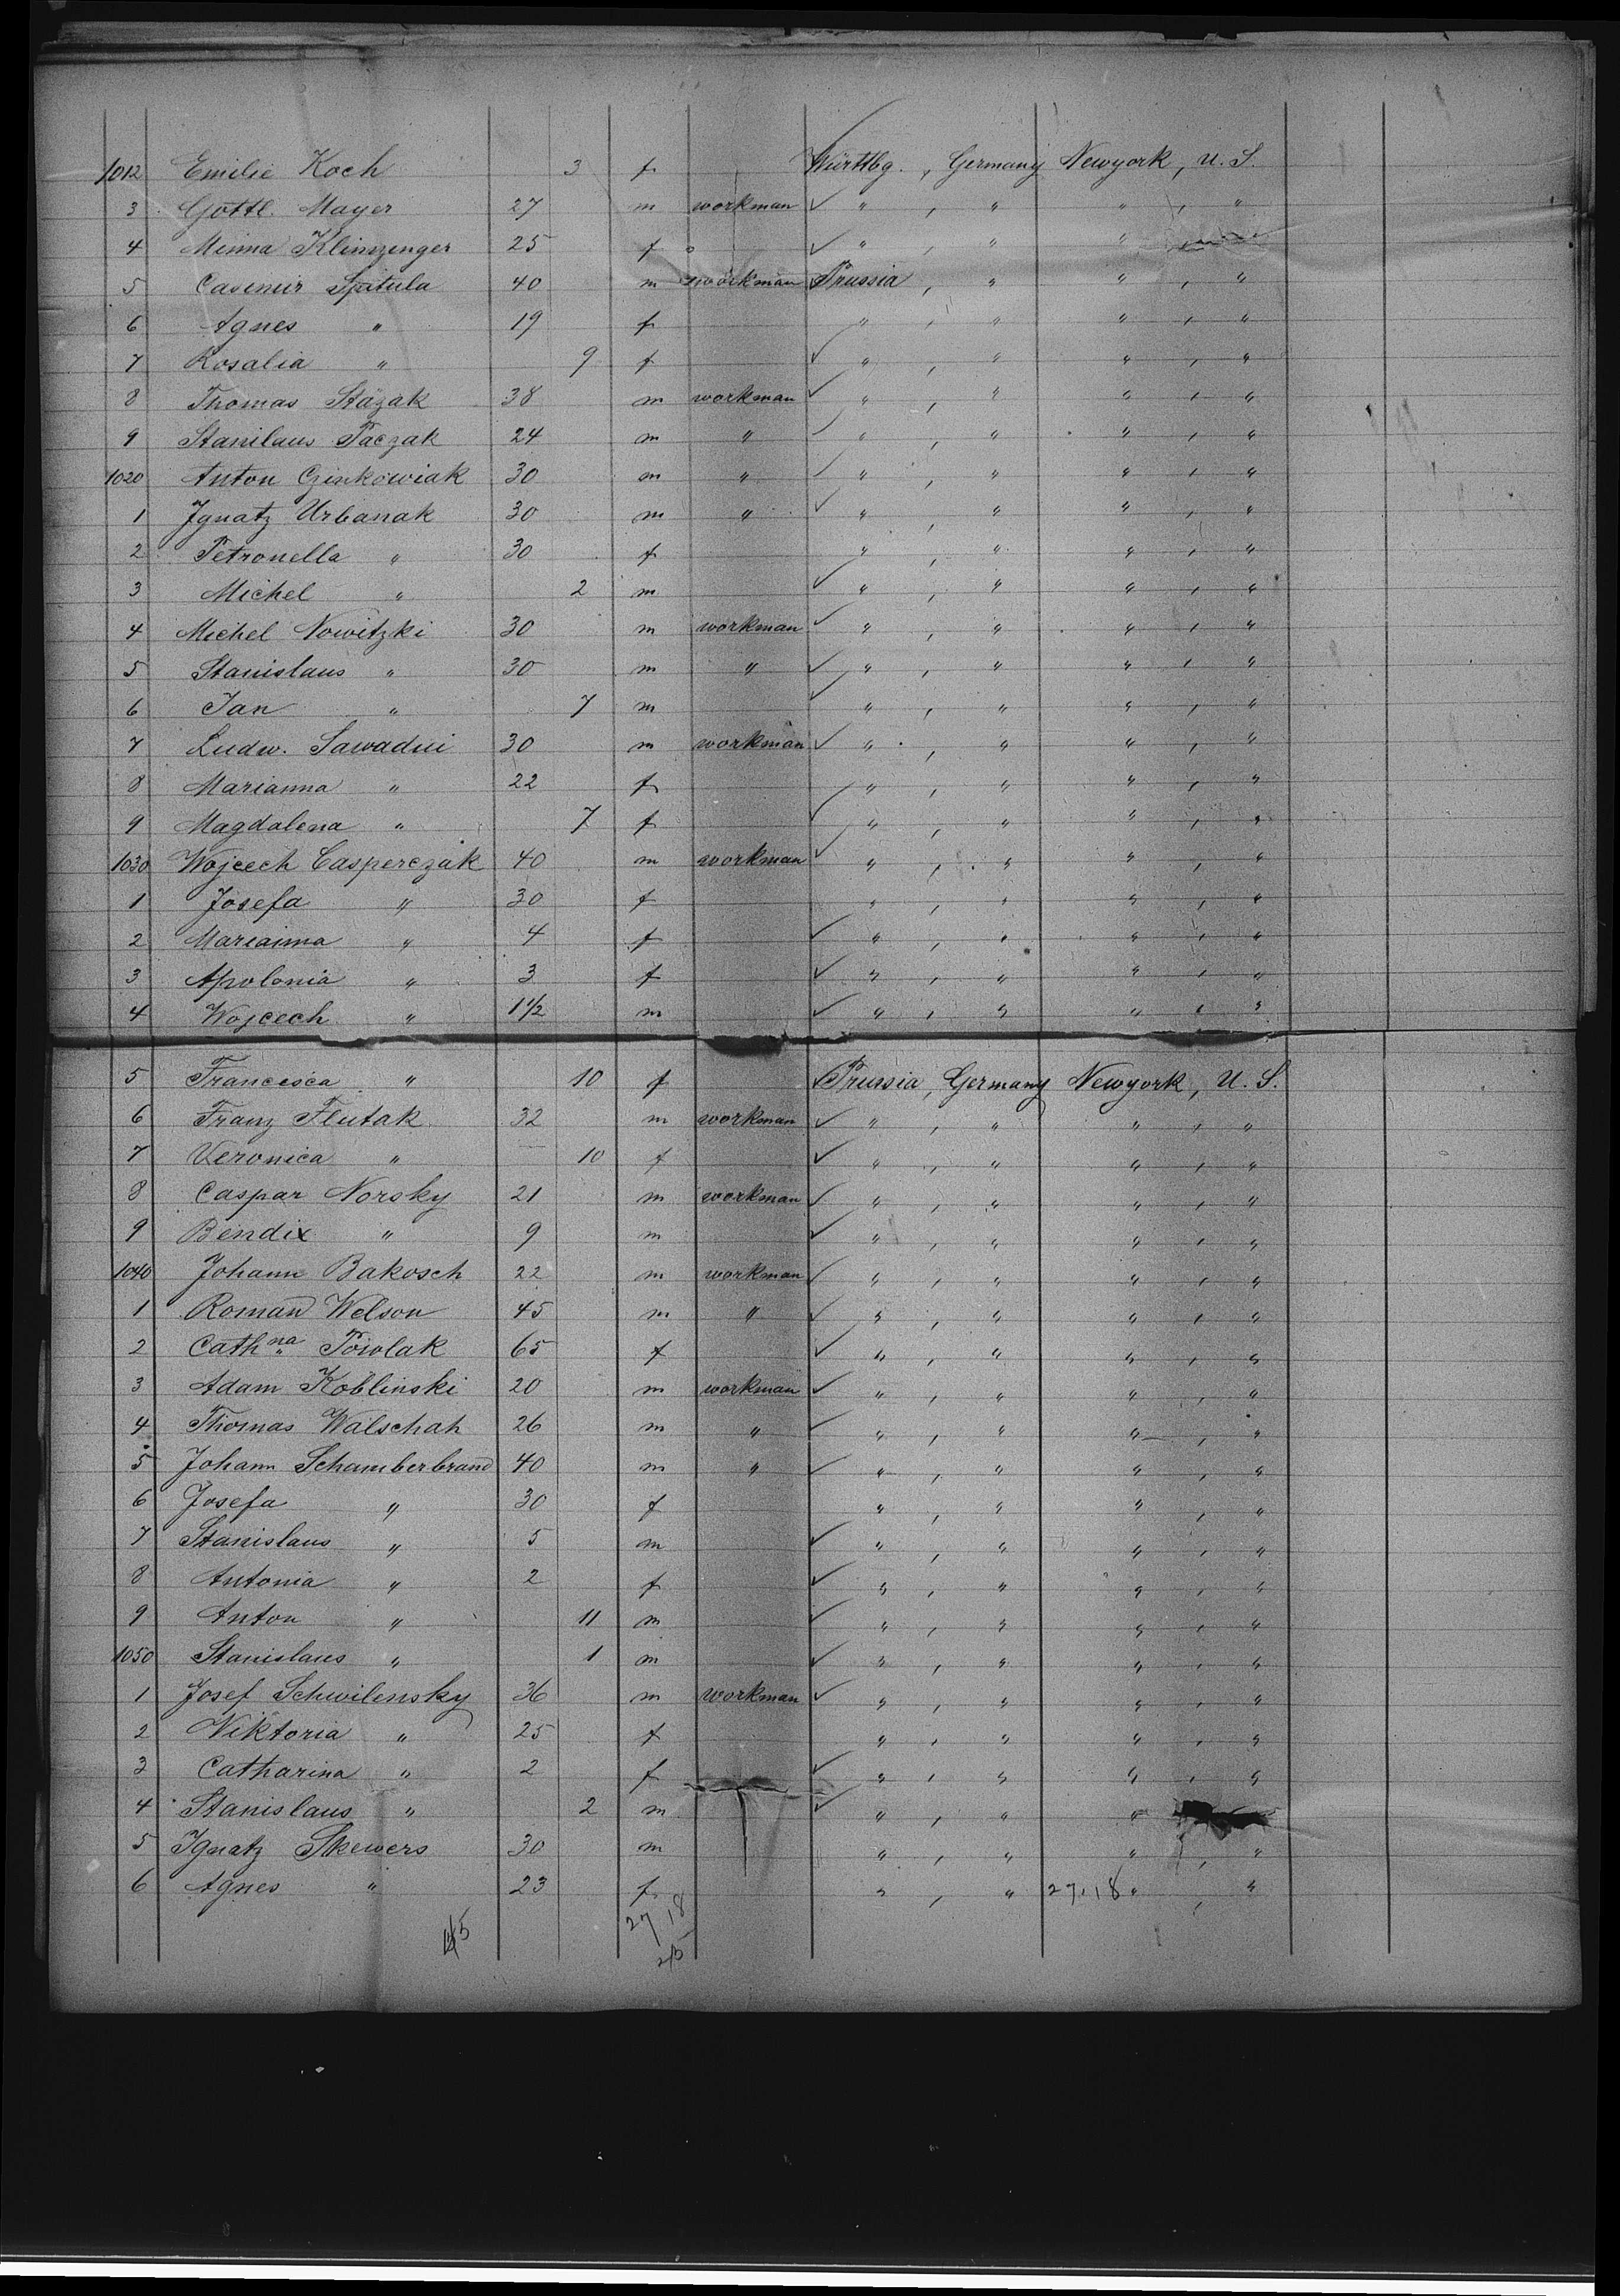 1012 Emilie Koch 3 f Württbg. , Germany Newyork, U. S.
3 Gottl. Mayer 27 m workman ✓ " , " " , "
4 Minna Klinzenger 25 f ✓ " , " "
5 Casimir Spitula 40 m workman Prussia , " " , "
6 Agnes " 19 f " , " " , "
7 Rosalia " 9 f ✓ " , " " , "
8 Thomas Stäzak 38 m workman ✓ " , " " , "
9 Stanilaus Paczak 24 m " ✓ " , " " , "
1020 Anton Czinkowiak 30 m " ✓ " , " " , "
1 Ignatz Urbanak 30 m " ✓ " , " " , "
2 Petronella " 30 f " , " " , "
3 Michel " 2 m ✓ " , " " , "
4 Michel Nowitzki 30 m workman ✓ " , " " , "
5 Stanislaus " 30 m " ✓ " , " " , "
6 Jan " 7 m ✓ " , " " , "
7 Ludw. Sawadni 30 m workman ✓ " , " " , "
8 Marianna " 22 f " , " " , "
9 Magdalena " 7 f ✓ " , " " , "
1030 Wojcech Casperczak 40 m workman ✓ " , " " , "
1 Josefa " 30 f " , " " , "
2 Marianna " 4 f ✓ " , " " , "
3 Apolonia " 3 f ✓ " , " " , "
4 Wojcech " 1 1/2 m ✓ " , " " , "
5 Francisca " 10 f Prussia , Germany Newyork, U. S.
6 Franz Flutak 32 m workman ✓ " , " " , "
7 Veronica " 10 f ✓ " , " " , "
8 Caspar Norsky 21 m workman ✓ " , " " , "
9 Bendix " 9 m ✓ " , " " , "
1040 Johann Bakosch 22 m workman ✓ " , " " , "
1 Roman Welson 45 m " ✓ " , " " , "
2 Cathna Powlak 65 f ✓ " , " " , "
3 Adam Koblinski 20 m workman ✓ " , " " , "
4 Thomas Walschah 26 m " ✓ " , " " , "
5 Johann Schamberbrand 40 m " ✓ " , " " , "
6 Josefa " 30 f " , " " , "
7 Stanislaus " 5 m ✓ " , " " , "
8 Antonia " 2 f ✓ " , " " , "
9 Anton " 11 m ✓ " , " " , "
1050 Stanislaus " 1 m ✓ " , " " , "
1 Josef Schwilensky 36 m workman ✓ " , " " , "
2 Viktoria " 25 f " , " " , "
3 Catharina " 2 f ✓ " , " " , "
4 Stanislaus " 2 m ✓ " , " "
5 Ignatz Skewers 30 m " , " " , "
6 Agnes " 23 f " , " 27.18 " , "
45 27 18